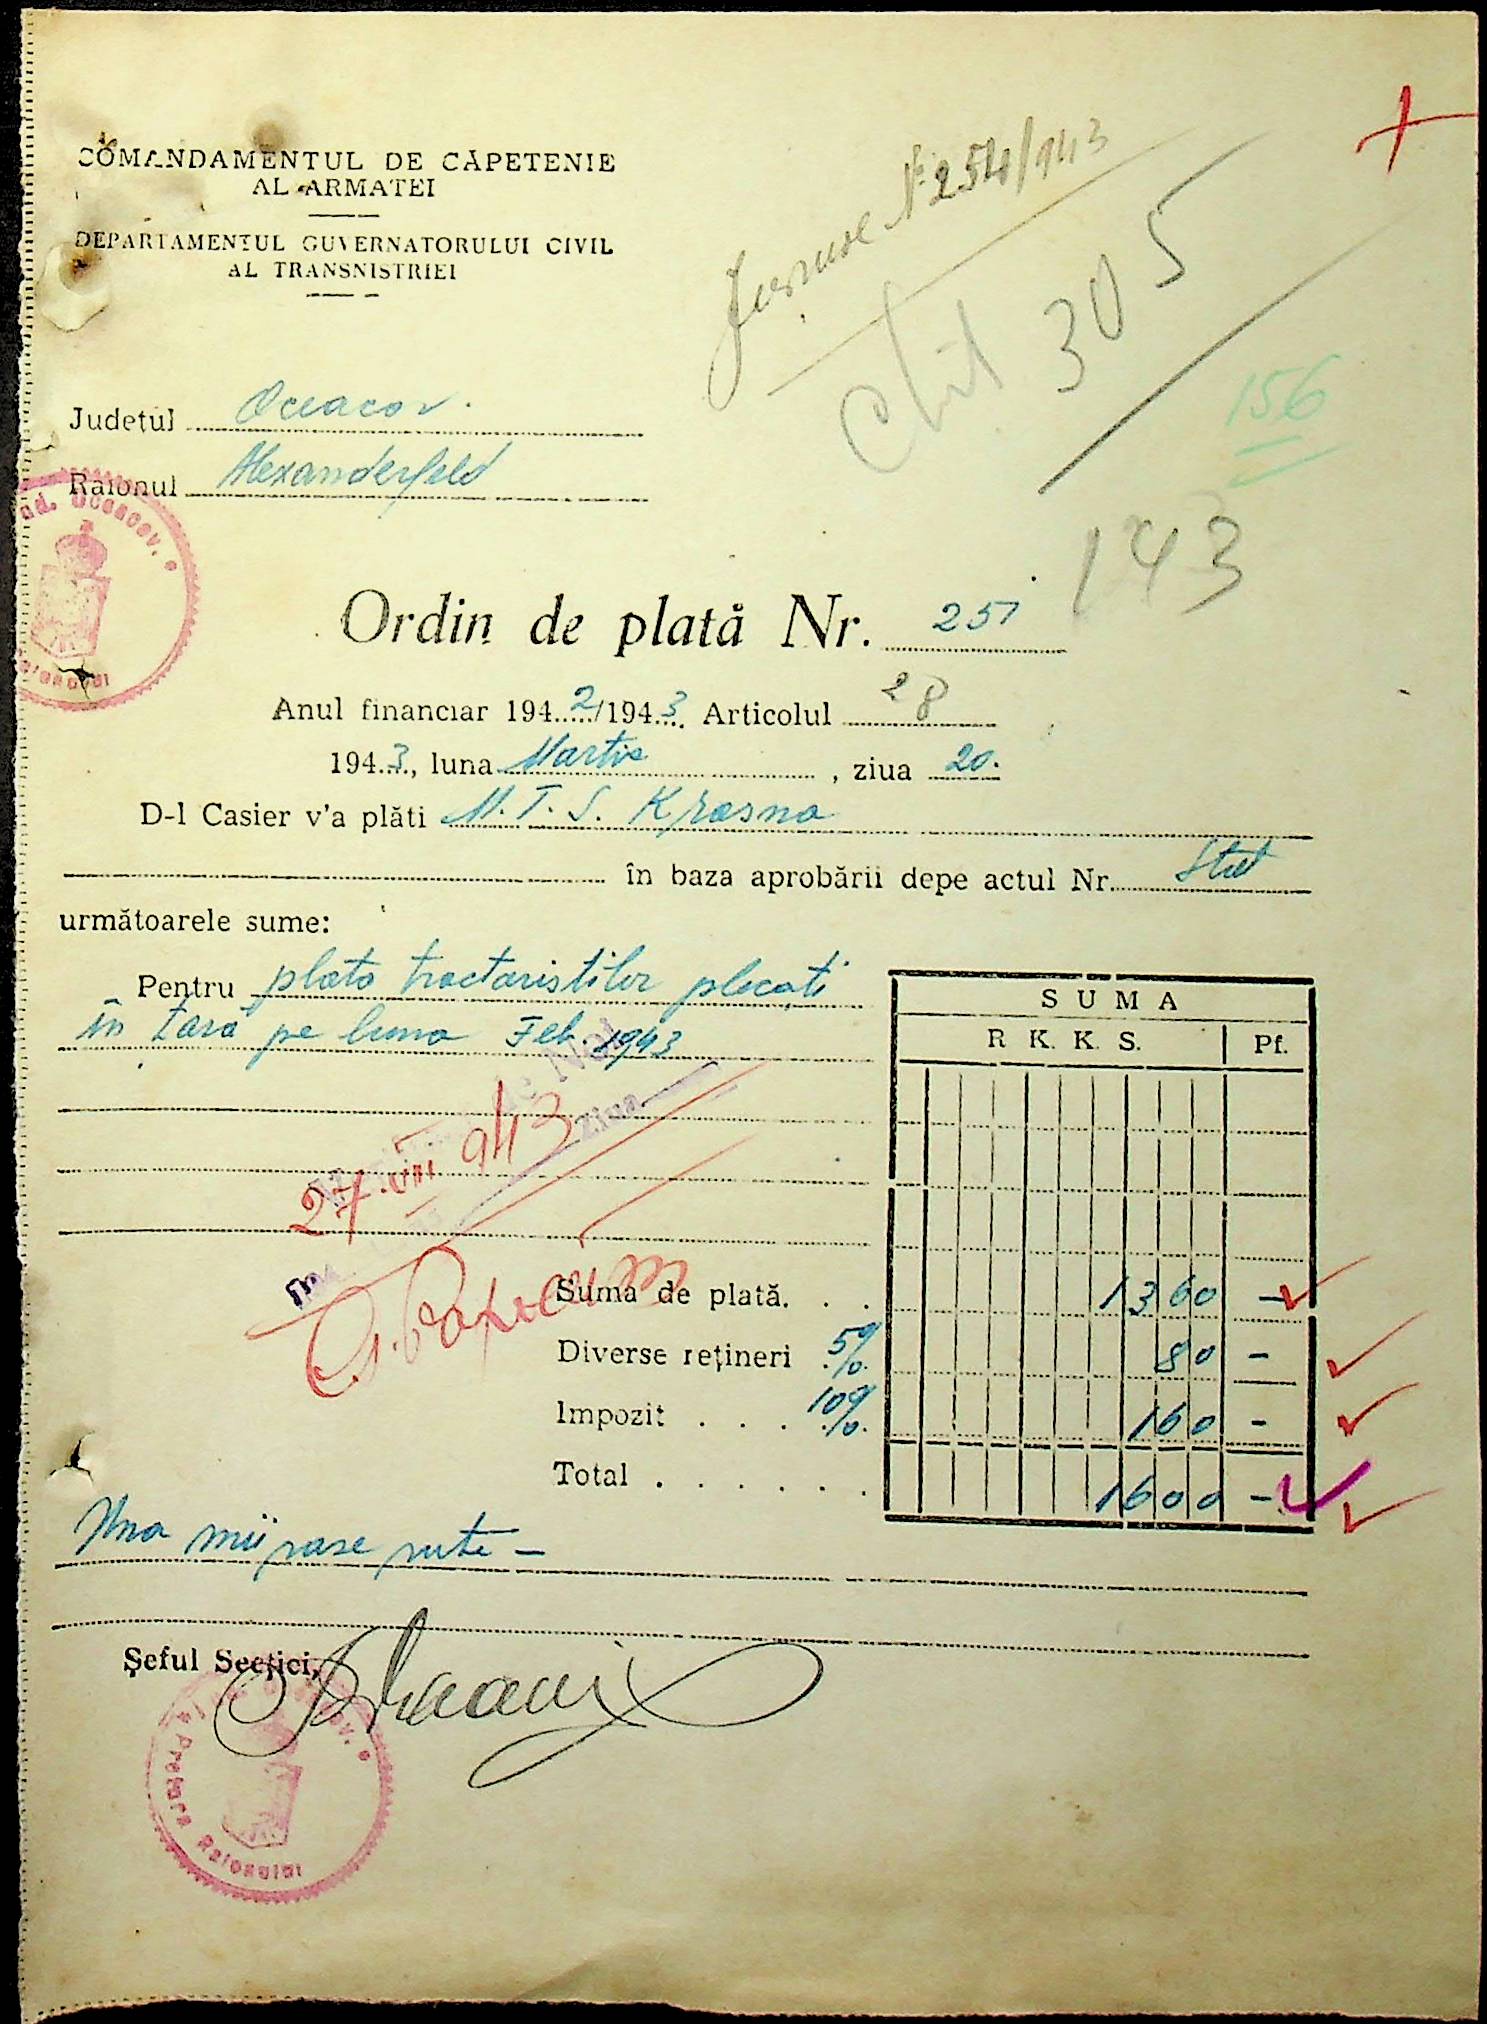 COMANDAMENTUL DE CĂPETENIE
AL ARMATEI
DEPARTAMENTUL GUVERNATORULUI CIVIL
AL TRANSNISTRIEI
No 254/943
Chit 305
156
143
Județul Oceacov.
Raionul Alexanderfeld
Jud. Oceacov.
Raionului
Ordin de plată Nr. 251
Anul financiar 1942/1943. Articolul 28
1943, luna Martie, ziua 20.
D-l Casier v'a plăti M.T.S. Krasna
în baza aprobării depe actul Nr. Stat
următoarele sume:
Pentru plata tractoristilor plecați
în țară pe luna Feb. 1943
SUMA
R. K. K. S. Pf.
ziua
27 VIII 943
Suma de plată. . . 1360 -
Diverse rețineri 5% 80 -
Impozit . . . 10% 160 -
Total . . . . . . 1600 -
Una mii șase sute -
Șeful Secției,
Pretura Raionului